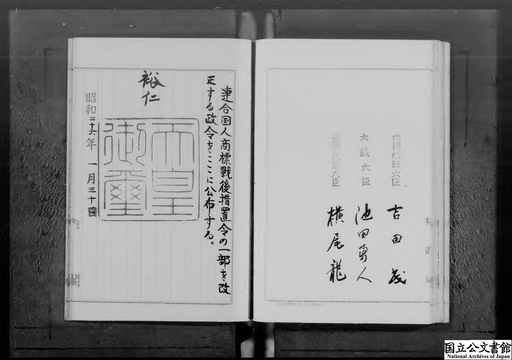 連合国人商標戰後措置令の一部を改
正する政令をここに公布する。
裕仁
天皇
御璽
昭和二十六年 一月三十日
内閣総理大臣 吉田茂
大蔵大臣 池田勇人
横尾龍
国立公文書館
National Archives of Japan